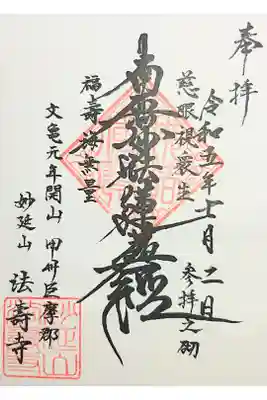 奉拝
令和五年十一月二日
参拝之砌
慈眼視衆生
南無妙法蓮華経
福壽海無量
文亀元年開山 甲州巨摩郡
妙延山 法壽寺